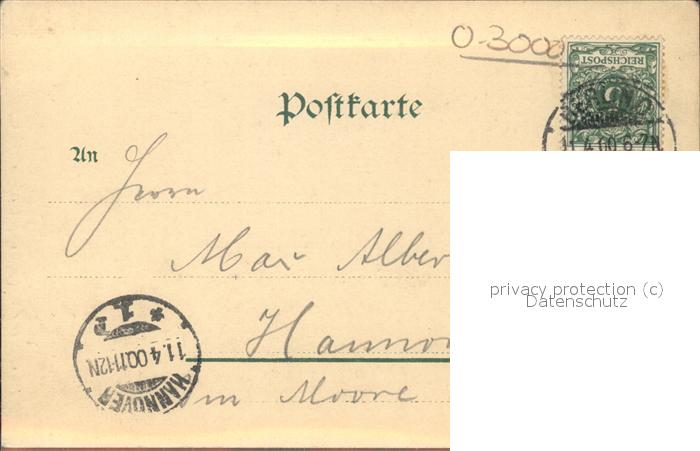 O-3000
REICHSPOST
5
Postkarte
11.4.00.6-7N
An
Herrn
Max Alber
Hannov
Am Moore
* 1 P
11.4.00.11-12N
HANNOVER
privacy protection (c)
Datenschutz